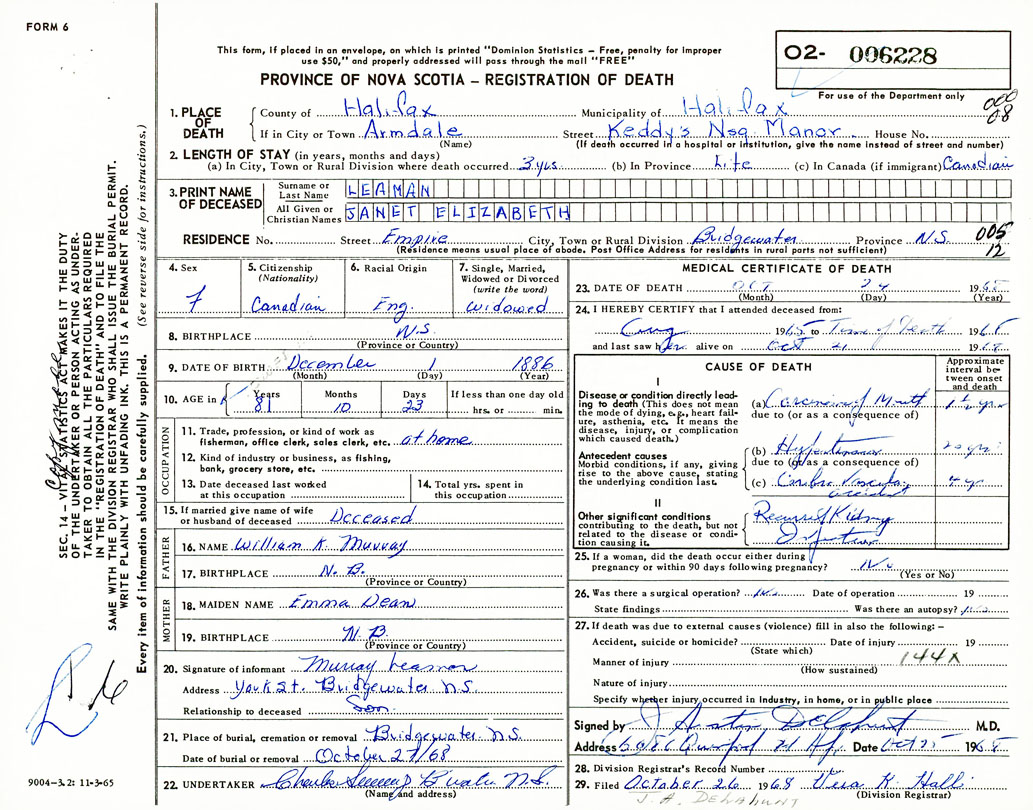 FORM 6
This form, if placed in an envelope, on which is printed "Dominion Statistics – Free, penalty for improper
use $50," and properly addressed will pass through the mail "FREE"
PROVINCE OF NOVA SCOTIA – REGISTRATION OF DEATH
O2- 006228
For use of the Department only
000
08
1. PLACE OF DEATH County of Halifax Municipality of Halifax
If in City or Town Armdale Street Keddy's Nsg. Manor House No.
(Name) (If death occurred in a hospital or institution, give the name instead of street and number)
2. LENGTH OF STAY (in years, months and days)
(a) In City, Town or Rural Division where death occurred 3 yrs. (b) In Province Life (c) In Canada (if immigrant) Canadian
3. PRINT NAME OF DECEASED Surname or Last Name LEAMAN
All Given or Christian Names JANET ELIZABETH
RESIDENCE No. Street Empire City, Town or Rural Division Bridgewater Province N.S. 005
12
(Residence means usual place of abode. Post Office Address for residents in rural parts not sufficient)
4. Sex F
5. Citizenship (Nationality) Canadian
6. Racial Origin Eng.
7. Single, Married, Widowed or Divorced (write the word) Widowed
8. BIRTHPLACE N.S.
(Province or Country)
9. DATE OF BIRTH December 1 1886
(Month) (Day) (Year)
10. AGE in Years 81 Months 10 Days 23 If less than one day old hrs. or min.
OCCUPATION
11. Trade, profession, or kind of work as
fisherman, office clerk, sales clerk, etc. at home
12. Kind of industry or business, as fishing,
bank, grocery store, etc.
13. Date deceased last worked
at this occupation
14. Total yrs. spent in
this occupation
15. If married give name of wife
or husband of deceased Deceased
FATHER
16. NAME William K. Murray
17. BIRTHPLACE N.B.
(Province or Country)
MOTHER
18. MAIDEN NAME Emma Dean
19. BIRTHPLACE N B.
(Province or Country)
20. Signature of informant Murray Leaman
Address York St. Bridgewater N.S.
Relationship to deceased Son.
21. Place of burial, cremation or removal Bridgewater N.S.
Date of burial or removal October 27/68
22. UNDERTAKER Charles N.S.
(Name and address)
MEDICAL CERTIFICATE OF DEATH
23. DATE OF DEATH OCT 24 1968
(Month) (Day) (Year)
24. I HEREBY CERTIFY that I attended deceased from:
Aug 1965 to Time of Death 1968
and last saw her alive on Oct 21 1968
CAUSE OF DEATH
Approximate interval between onset and death
I
Disease or condition directly leading to death (This does not mean
the mode of dying, e.g., heart failure, asthenia, etc. It means the
disease, injury, or complication
which caused death.)
(a) Carcinoma Mouth 1 ½ yr
due to (or as a consequence of)
Antecedent causes
Morbid conditions, if any, giving
rise to the above cause, stating
the underlying condition last.
(b) Hypertension 20 yrs
due to (or as a consequence of)
(c) Cerebro Vascular accident 4 yr
II
Other significant conditions
contributing to the death, but not
related to the disease or condition causing it.
Recurrent Kidney
Infection
25. If a woman, did the death occur either during
pregnancy or within 90 days following pregnancy? No
(Yes or No)
26. Was there a surgical operation? No Date of operation 19
State findings Was there an autopsy? No
27. If death was due to external causes (violence) fill in also the following: –
Accident, suicide or homicide? Date of injury 19
(State which)
144X
Manner of injury
(How sustained)
Nature of injury
Specify whether injury occurred in industry, in home, or in public place
Signed by J Austin Delahunt M.D.
Address Date Oct 25 1968
28. Division Registrar's Record Number
29. Filed October 26 1968 Vera K. Halli
(Division Registrar)
J. A. DELAHUNT
SEC. 14 – VITAL STATISTICS ACT MAKES IT THE DUTY
OF THE UNDERTAKER OR PERSON ACTING AS UNDER-
TAKER TO OBTAIN ALL THE PARTICULARS REQUIRED
IN THE "REGISTRATION OF DEATH" AND TO FILE THE
SAME WITH THE DIVISION REGISTRAR WHO SHALL ISSUE THE BURIAL PERMIT.
WRITE PLAINLY WITH UNFADING INK. THIS IS A PERMANENT RECORD.
Every item of information should be carefully supplied. (See reverse side for instructions.)
9004–3.2: 11-3-65